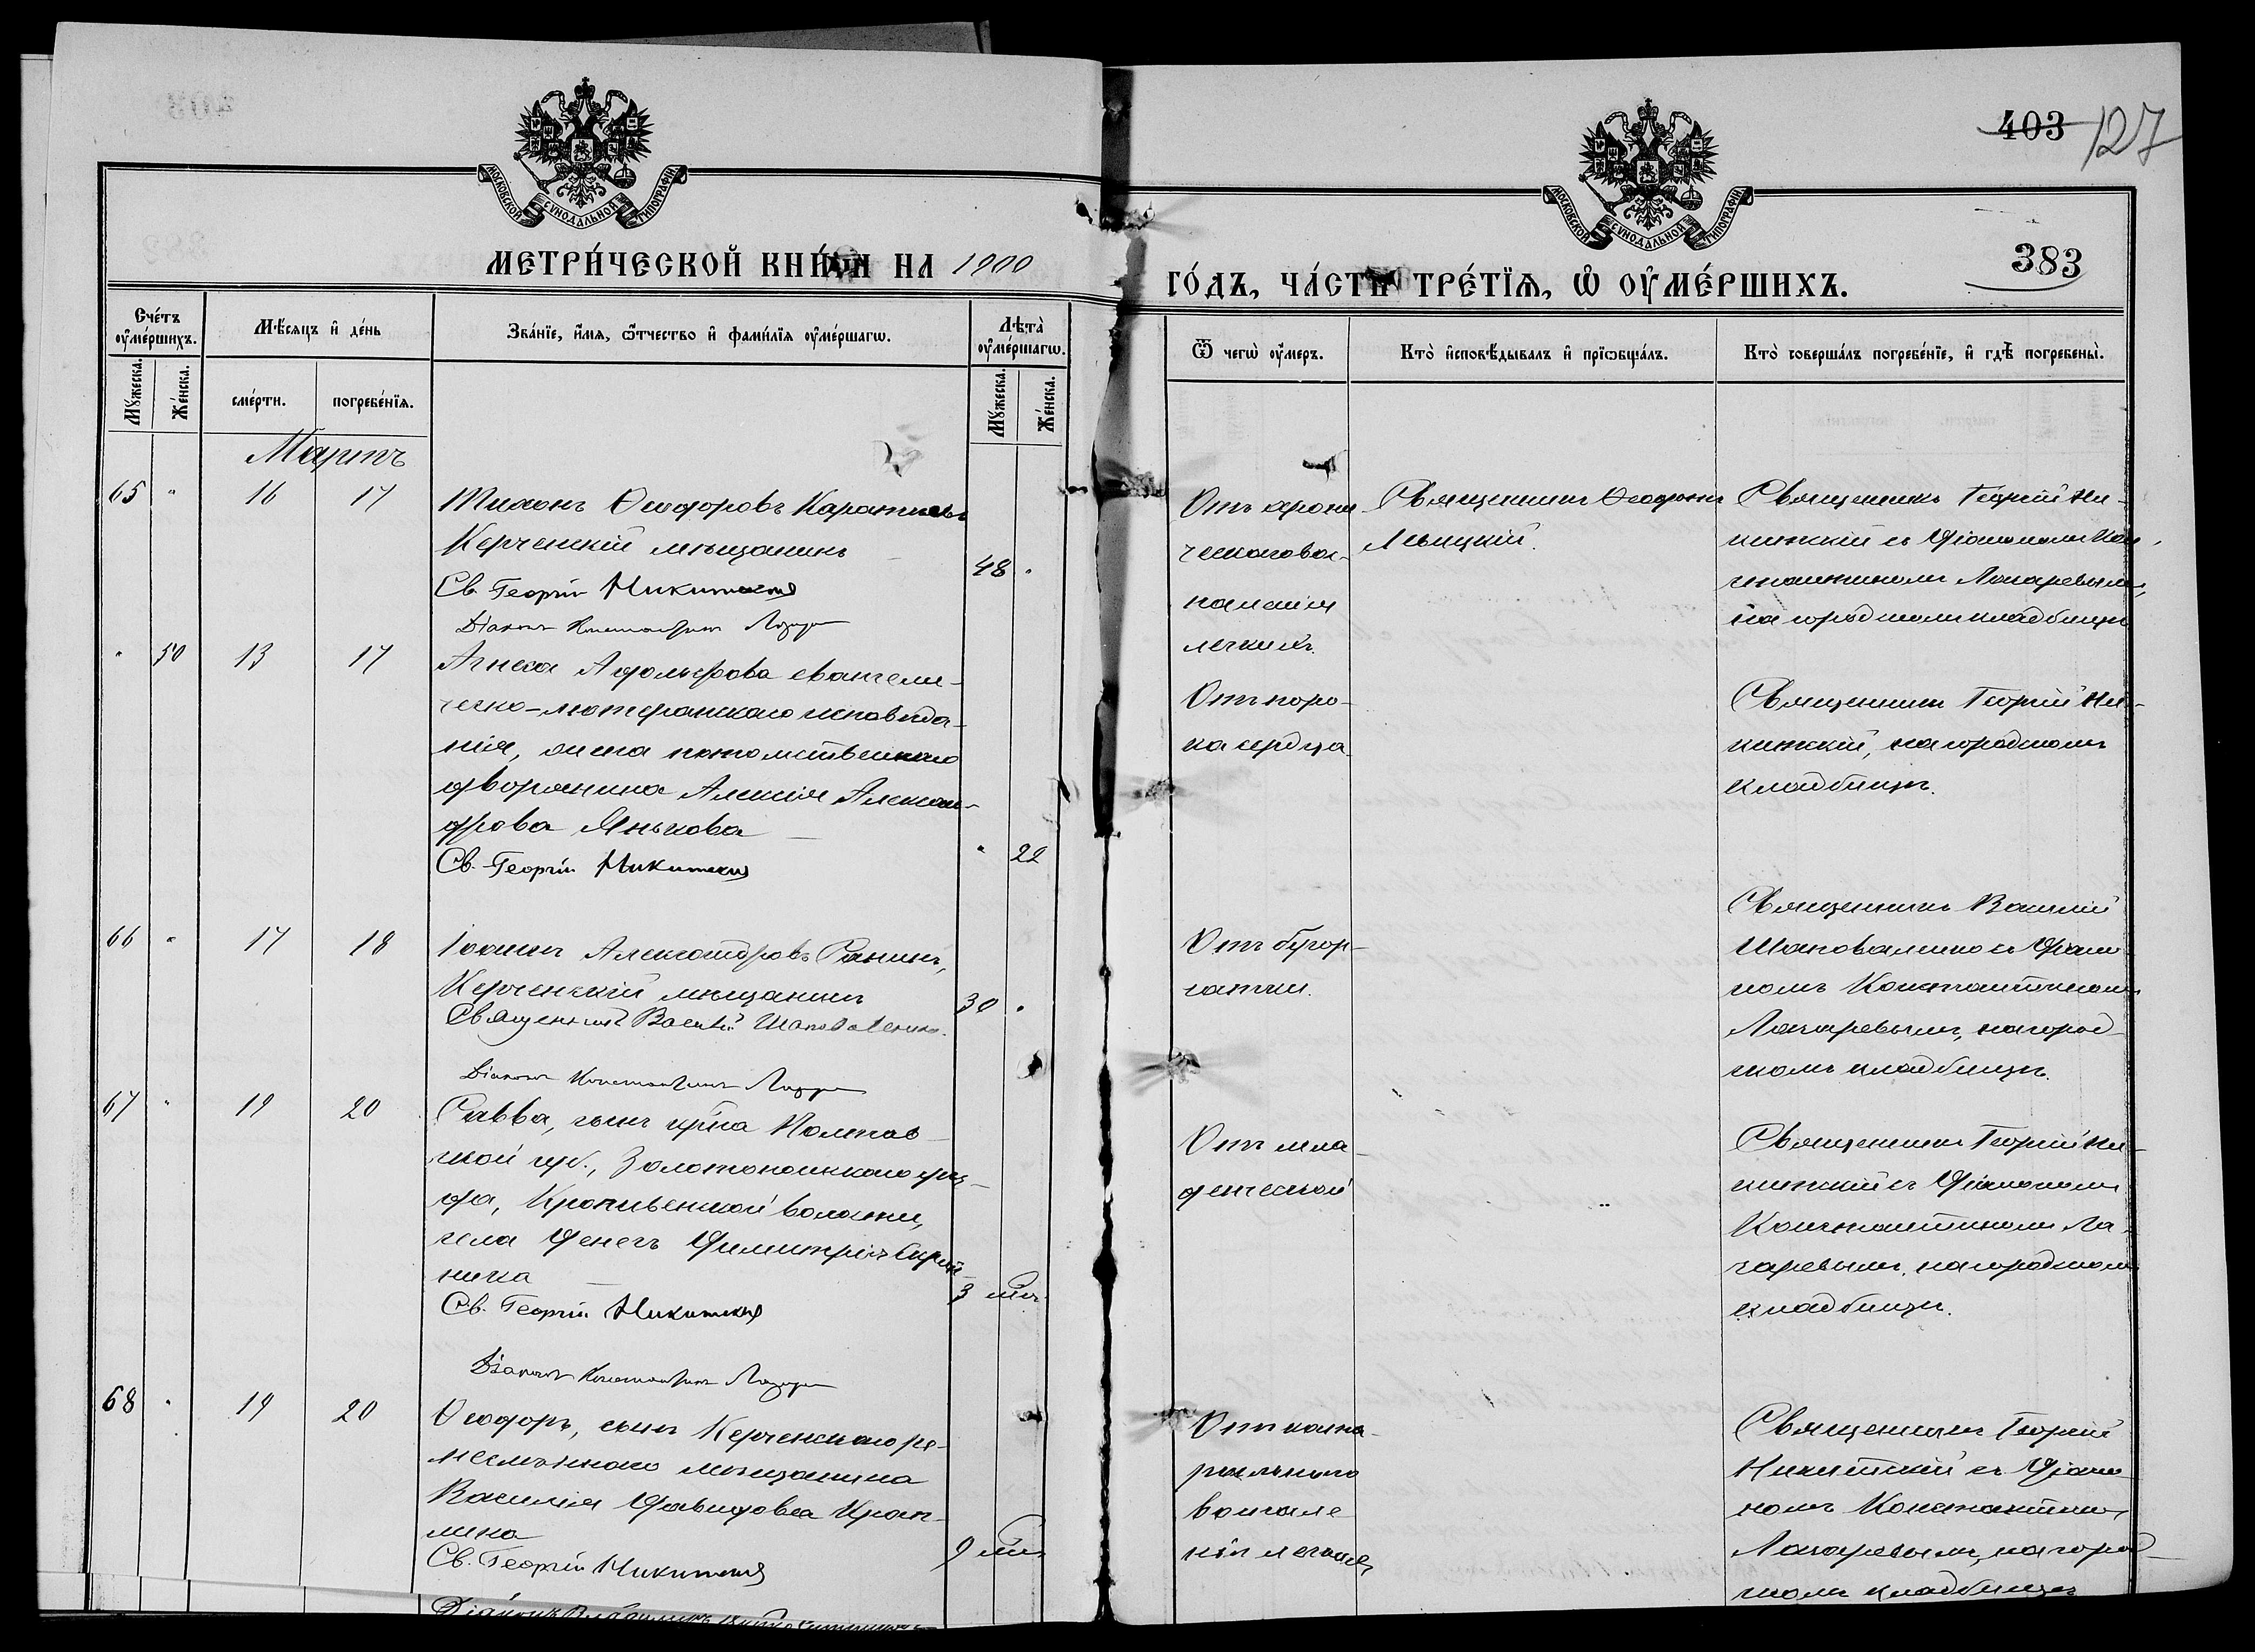 403 127
МОСКОВСКОЙ СУНОДАЛЬНОЙ ТИПОГРАФІИ
МОСКОВСКОЙ СУНОДАЛЬНОЙ ТИПОГРАФІИ
383
МЕТРИ́ЧЕСКОЙ КНИ́ГИ НА 1900
ГО́ДЪ, ЧА́СТЬ ТРЕ́ТЇѦ, Ѡ҆ ОУ҆МЕ́РШИХЪ.
Сче́тъ оу҆ме́ршихъ.
Мꙋ́жеска.
Же́нска.
Мѣ́сяцъ и҆ де́нь
сме́рти.
погребе́нїѧ.
Зва́нїе, и҆́мѧ, ѻ҆́тчество и҆ фами́лїѧ оу҆ме́ршагѡ.
Лѣта̀ оу҆ме́ршагѡ.
Мꙋ́жеска.
Же́нска.
Ѿ чегѡ̀ оу҆́меръ.
Кто̀ и҆сповѣ́дывалъ и҆ прїѡбща́лъ.
Кто̀ соверша́лъ погребе́нїе, и҆ гдѣ̀ погребены̀.
Мартъ
65 " 16 17
Тихонъ Ѳеодоровъ
Керченскій мѣщанинъ
48 "
Св. Георгій Никитскій
Діаконъ Константинъ
Отъ хрони-
ческаго вос-
паленія
легкихъ.
Священникъ Ѳеофанъ
Левицкій.
Священникъ Георгій Ни-
китскій съ Діакономъ Кон-
стантиномъ Лазаревымъ,
на городскомъ кладбищѣ
" 50 13 17
Агнеса Адольфова евангели-
ческо-лютеранскаго исповѣда-
нія, жена потомственнаго
дворянина Алексія Алексан-
дрова Янькова
" 22
Св. Георгій Никитскій
Отъ поро-
ка сердца
Священникъ Георгій Ни-
китскій, на городскомъ
кладбищѣ.
66 " 17 18
Іоаннъ Александровъ Санинъ,
Керченскій мѣщанинъ
30 "
Священникъ Василій Шаповаленко.
Діаконъ Константинъ
Отъ бугор-
чатки.
Священникъ Василій
Шаповаленко съ Діако-
номъ Константиномъ
Лазаревымъ, на город-
скомъ кладбищѣ.
67 " 19 20
Савва, сынъ кр-на Полтав-
ской губ., Золотоношскаго уѣз-
да, Кропивенской волости,
села Денегъ Димитрія
ника
3 мѣс.
Св. Георгій Никитскій
Діаконъ Константинъ
Отъ мла-
денческой
Священникъ Георгій Ни-
китскій съ Діакономъ
Константиномъ Ла-
заревымъ, на городскомъ
кладбищѣ.
68 " 19 20
Ѳеодоръ, сынъ Керченскаго ре-
месленнаго мѣщанина
Василія Давидова
9 мѣс.
Св. Георгій Никитскій
Отъ ката-
ральнаго
воспале-
нія легкихъ
Священникъ Георгій
Никитскій съ Діако-
номъ Константином
Лазаревымъ, на город-
скомъ кладбищѣ